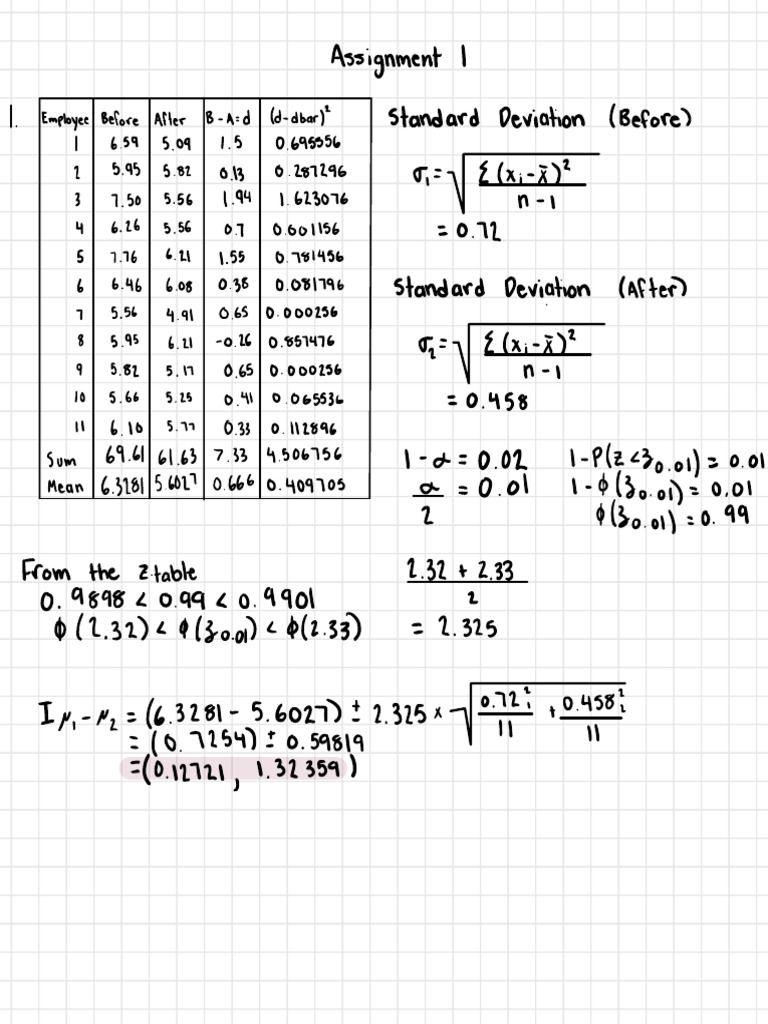 Assignment 1
1.
Employee Before After B - A = d (d - dbar)²
1 6.59 5.09 1.5 0.695556
2 5.95 5.82 0.13 0.287296
3 7.50 5.56 1.94 1.623076
4 6.26 5.56 0.7 0.001156
5 7.76 6.21 1.55 0.781456
6 6.46 6.08 0.38 0.081796
7 5.56 4.91 0.65 0.000256
8 5.95 6.21 -0.26 0.857476
9 5.82 5.17 0.65 0.000256
10 5.66 5.25 0.41 0.065536
11 6.10 5.77 0.33 0.112896
Sum 69.61 61.63 7.33 4.506756
Mean 6.3281 5.6027 0.666 0.409705
Standard Deviation (Before)
σ₁ = √(Σ(xᵢ - x̄)² / n - 1)
= 0.72
Standard Deviation (After)
σ₂ = √(Σ(xᵢ - x̄)² / n - 1)
= 0.458
1 - α = 0.02
α/2 = 0.01
1 - P(z < z0.01) = 0.01
1 - ϕ(z0.01) = 0.01
ϕ(z0.01) = 0.99
From the z-table
0.9898 < 0.99 < 0.9901
ϕ(2.32) < ϕ(z0.01) < ϕ(2.33)
2.32 + 2.33 / 2
= 2.325
I μ₁ - μ₂ = (6.3281 - 5.6027) ± 2.325 × √(0.72² / 11 + 0.458² / 11)
= (0.7254) ± 0.59819
= (0.12721, 1.32359)